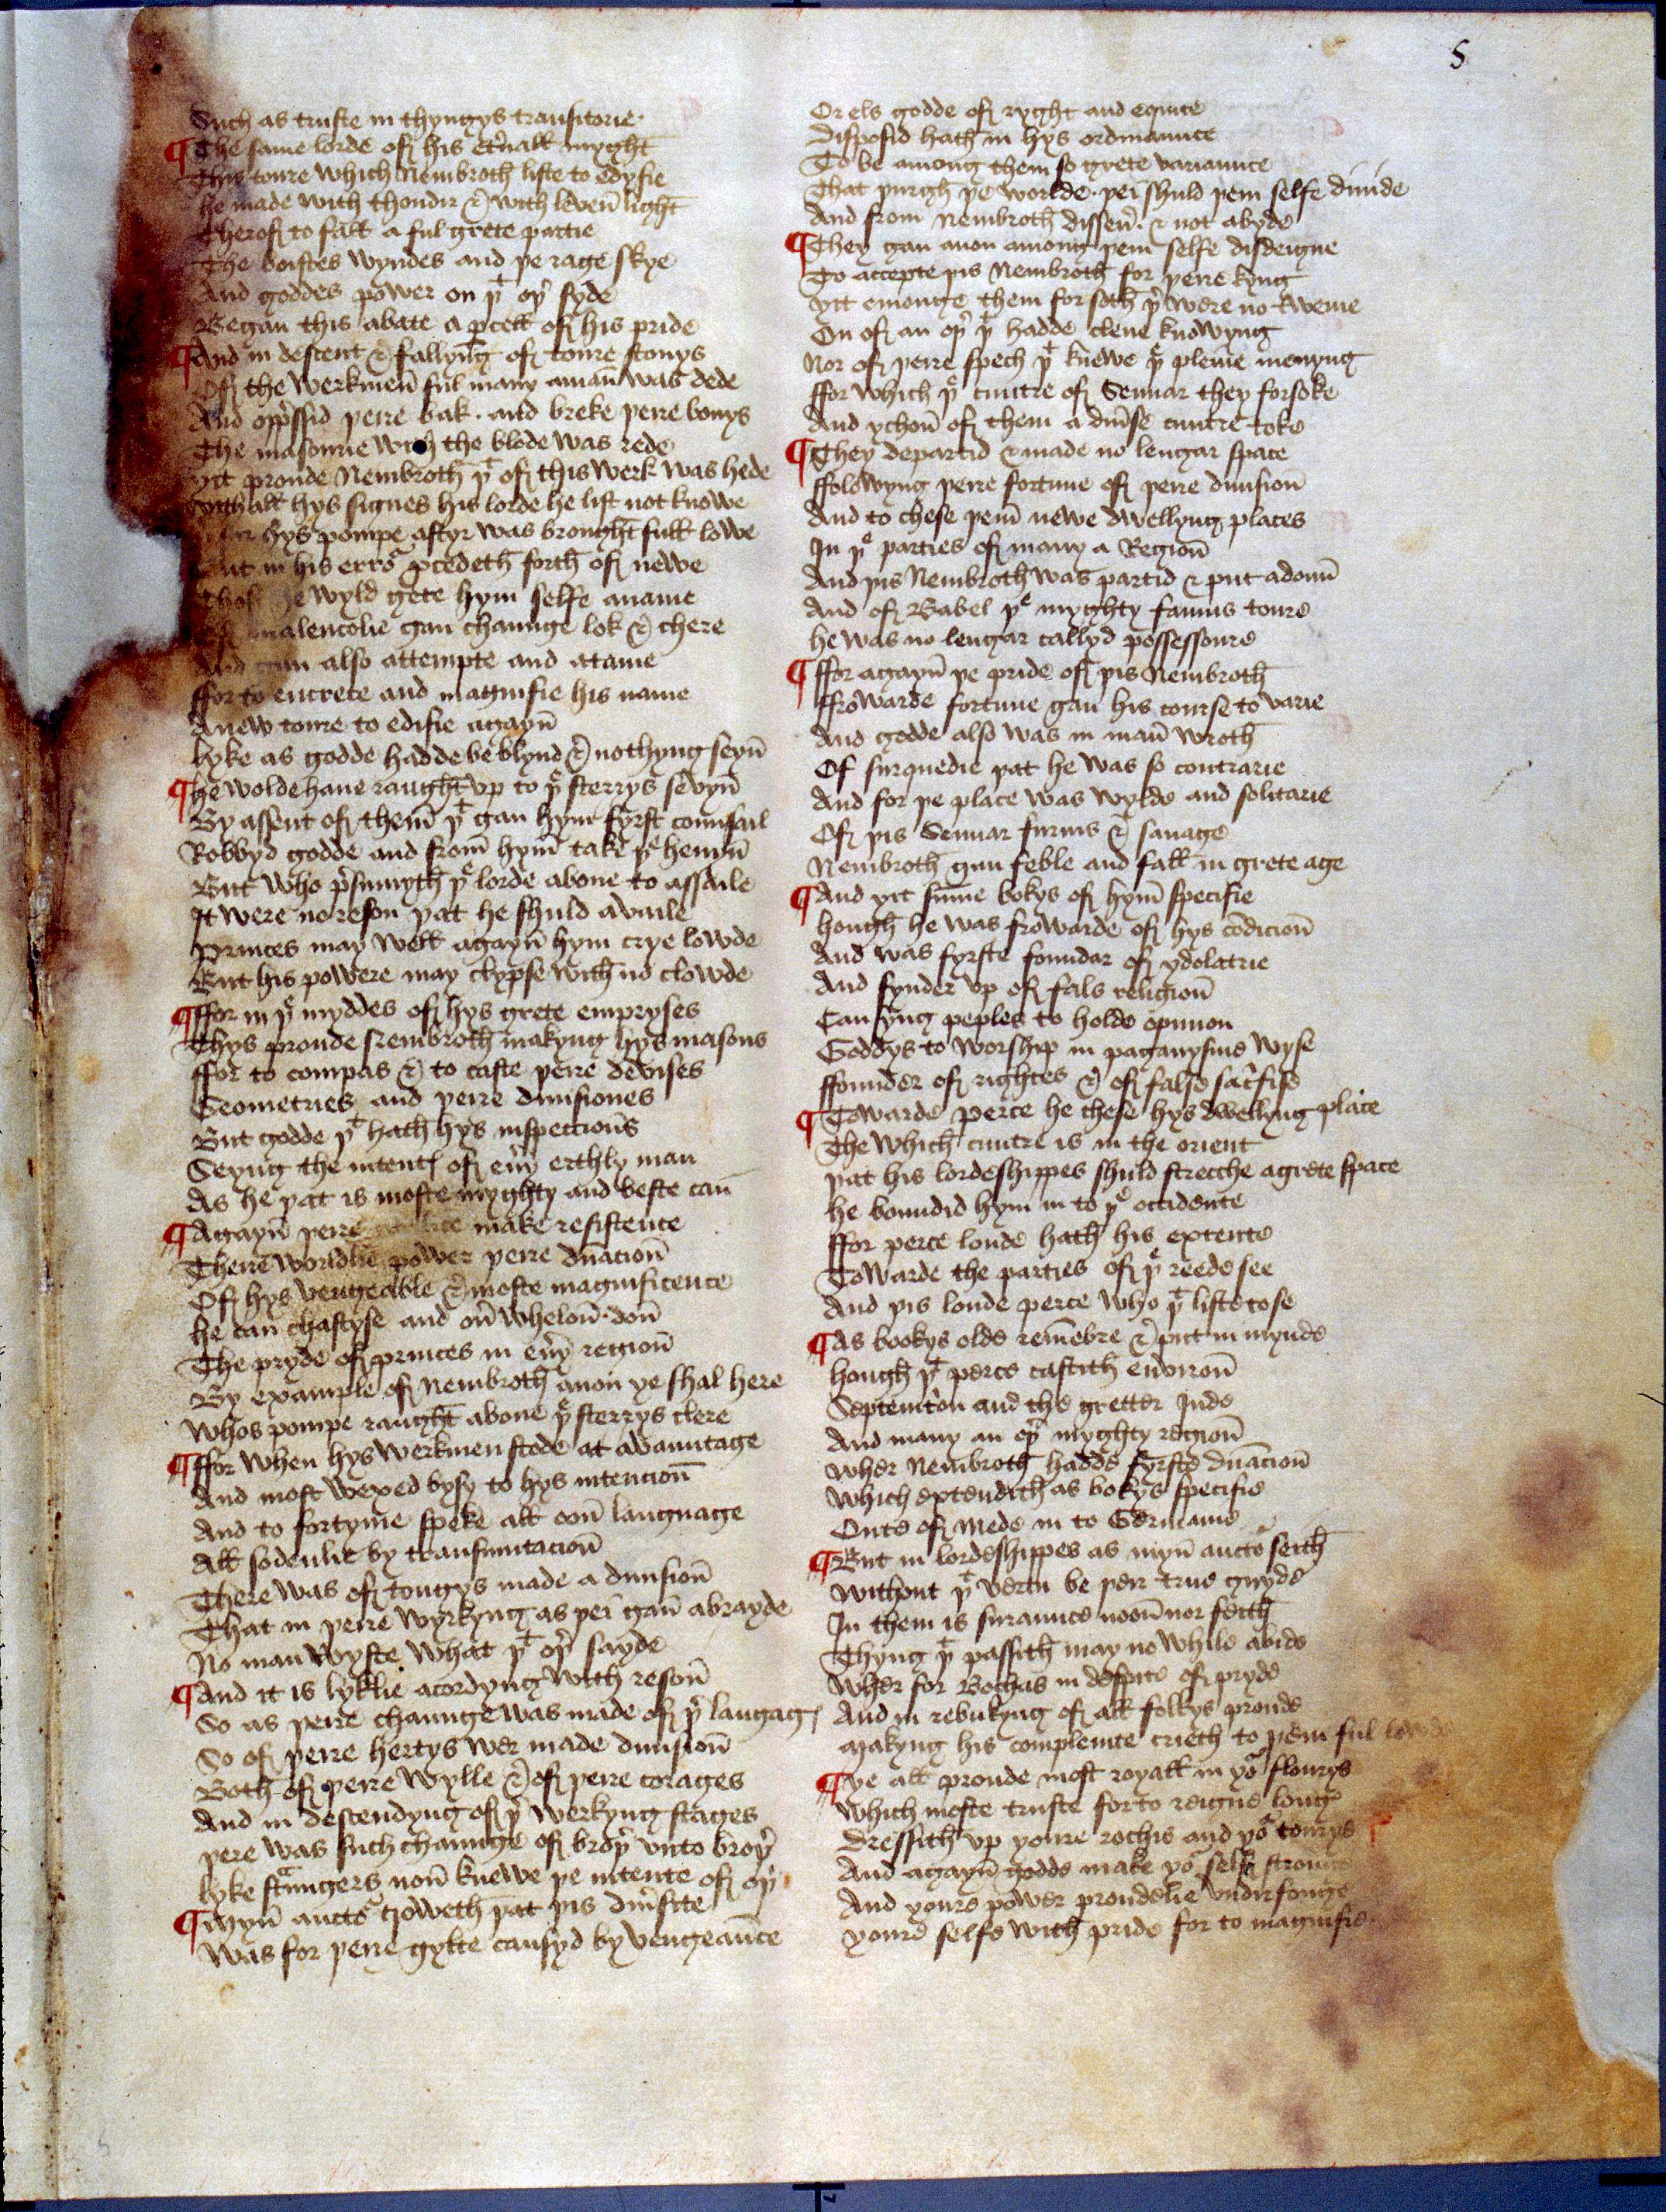 5
Such as truste in thyngys transitorie
¶ The same lorde of his et'nall myght
This toure which Nembroth liste to edyfie
he made with thondir & with leven light
Therof to fall a ful grete partie
The boistes wyndes and þe rage skye
And goddes power on þt oþ' syde
Began this abate a pcell of his pride
¶ And in descent & fallyng of toure stonys
Of the werkmen ful many a man was dede
And opp'ssid þeire bak . and breke þeire bonys
The masonrie with the blode was rede
yit proude Nembroth þt of this werk was hede
with all hys signes his lorde he list not knowe
hys pompe aftyr was brought full lowe
But in his erro' pcedeth forth of newe
he wyld gete hym selfe a name
malencolie gan chaunge lok & chere
And gan also attempte and atame
ffor to encrece and magnifie his name
A new toure to edifie agayn
lyke as godde hadde be blynd & nothyng seyn
¶ he wolde haue raught vp to þe sterrys sevyn
By assent of them þt gan hym fyrst counsail
Robbyd godde and from hym take þe hevyn
But who p'sumyth þe lorde aboue to assaile
It were no reson þat he shuld availe
Princes may well agayn hym crye lowde
But his powere may clypse with no clowde
¶ ffor in þe myddes of hys grete empryses
Thys proude Nembroth makyng hys masons
ffor to compas & to caste þeire devises
Geometries and þeire diuisiones
But godde þt hath hys inspections
Seying the intent of eu'y erthly man
As he þat is moste myghty and beste can
¶ Agayn þeire make resistence
There worldlie power þeire dnacion
Of hys vengeable & moste magnificence
he can chastyse and ou'whelom don
The pryde of princes in eu'y region
By example of Nembroth anon ye shal here
whos pompe raught aboue þe sterrys clere
¶ ffor when hys werkmen stode at avauntage
And most wexed bysy to hys intencion
And to fortyme speke all oon language
All sodenlie by transmutacion
There was of tongys made a diuision
That in þeire wyrkyng as þei gan abrayde
No man wyste what þt oþ' sayde
¶ And it is lyklie acordyng with reson
So as þeire chaunge was made of þ' langag
So of þeire hertys wer made diuision
Both of þeire wylle & of þeire corages
And in descendyng of þ' werkyng stages
þere was such chaunge of broþ' vnto broþ'
lyke st'angers non knewe þe intente of oþ'
¶ Myn aucto' troweth þat þis diu'site
was for þeire gylte causyd by vengeaunce
Or els godde of ryght and equite
Disposid hath in hys ordinaunce
To be among them so grete variaunce
That þurgh þe worlde . þei shuld þem selfe diuide
And from Nembroth disseu' . & not abyde
¶ They gan anon among þem selfe disdeigne
To accepte þis Nembroth for þeire kyng
yit emonge them for soth þ' were no tweine
On of an oþ' þt hadde clene knowyng
Nor of þeire spech þt knewe þe pleine menyng
ffor which þe cuntre of Sennar they forsoke
And ychon of them a diu'se cuntre toke
¶ They departid & made no lengar space
ffolowyng þeire fortune of þeire diuision
And to chese þem newe dwellyng places
In þe parties of many a Region
And þis Nembroth was partid & put adoun
And of Babel þe myghty famus toure
he was no lengar callyd possessoure
¶ ffor agayn þe pride of þis Nembroth
ffrowarde fortune gan his course to varie
And godde also was in man' wroth
Of surquedie þat he was so contrarie
And for þe place was wylde and solitarie
Of þis Sennar furius & sauage
Nembroth gan feble and fall in grete age
¶ And yit sume bokys of hym specifie
hough he was frowarde of hys condicion
And was fyrste foundar of ydolatrie
And fynder vp of fals religion
Causyng peples to holde opinion
Goddys to worship in paganysme wyse
ffounder of rightes & of false sac'fise
¶ Towarde perce he chese hys dwellyng place
The which cuntre is in the orient
þat his lordeshippes shuld strecche a grete space
he boundid hym in to þe occidente
ffor perce londe hath his extente
Towarde the parties of þe reede see
And þis londe perce who þt liste to se
¶ As bookys olde remebre & put in mynde
hough þt perce castith enviroun
Septemt'on and the gretter Inde
And many an oþ' myghty region
wher Nembroth hadde fyrste dnacion
which extendith as bokys specifie
Oute of Mede in to Germanie
¶ But in lordeshippes as myn aucto' seith
without þt vertu be þeir true guyde
In them is suraunce noon nor feith
Thyng þt passith may no while abide
wher for Bochas in despite of pryde
And in rebukyng of all folkys proude
Makyng his compleinte crieth to þem ful lowde
¶ ye all proude most royall in yo' flourys
which moste truste for to reigne longe
Dressith vp youre rochis and yo' tourys
And agayn godde make yo' self stronge
And youre power proudelie vndirfonge
youre selfe with pride for to magnifie